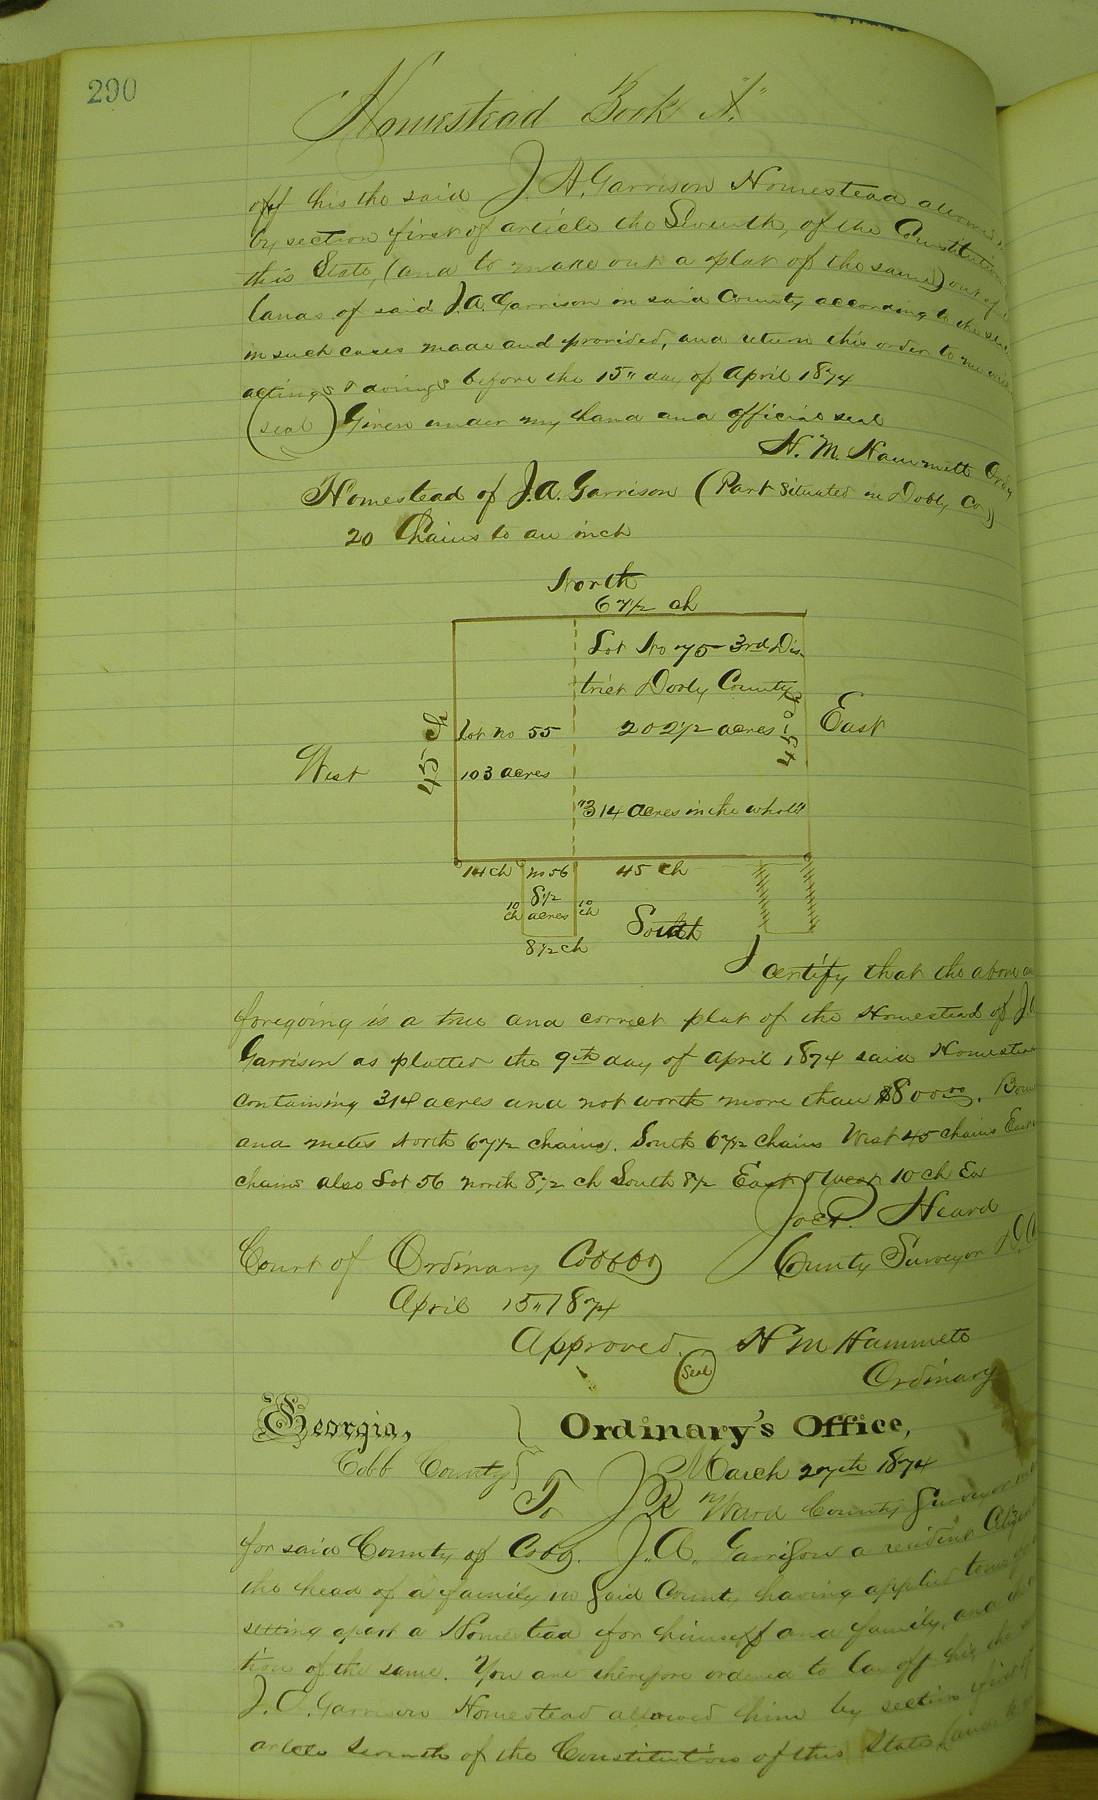 290
Homestead Book "A"
off his the said J. A. Garrison Homestead allowed
by section first of article the Seventh, of the Constitution
this State, (and to make out a plat of the same) out of
lands of said J. A. Garrison in said County according to the
in such cases made and provided, and return this order to me
actings & doings before the 15" day of April 1874
(seal) Given under my hand and official seal
H. M. Hammett Ordy
Homestead of J. A. Garrison (Part Situated in Dooly Co)
20 Chains to an inch
North
67 1/2 ch
Lot No 75 3rd Dis-
trict Dooly County
202 1/2 acres
45 ch
East
West
45 ch
Lot no 55
103 acres
"314 acres in the whole"
14 ch
no 56
45 ch
10 ch
8 1/2 acres
10 ch
South
8 1/2 ch
I certify that the above
foregoing is a true and correct plat of the Homestead of J. A
Garrison as platted the 9th day of April 1874 said Homestead
containing 314 acres and not worth more than $800.00.
and metes North 67 1/2 chains. South 67 1/2 chains West 45 chains East
chains also Lot 56 north 8 1/2 ch South 8 1/2 East & West 10 ch
Heard
County Surveyor D. C
Court of Ordinary Cobb Co
April 15" 1874
Approved. H M Hammett
(Seal) Ordinary
Georgia, } Ordinary's Office,
Cobb County } March 27th 1874
To J R Ward County Surveyor
for said County of Cobb. J. A. Garrison a resident
the head of a family in said County having applied to me
setting apart a Homestead for himself and family, and
tion of the same. You are therefore ordered to lay off his, the
J. A. Garrison Homestead allowed him by section first of
article Seventh of the Constitution of this State (and to